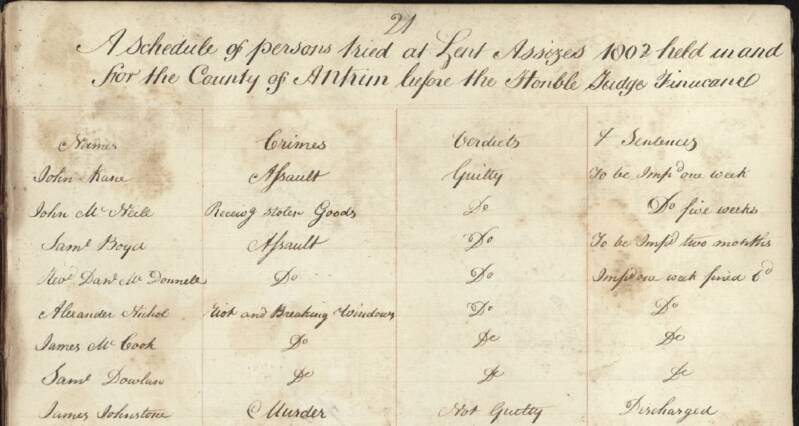 21
A schedule of persons tried at Lent Assizes 1802 held in and
for the County of Antrim before the Honble Judge Finucane
Names Crimes Verdicts & Sentences
John Kane Assault Guilty To be Impd one week
John McNeile Receivg stolen Goods Do Do five weeks
Saml Boyd Assault Do To be Impd two months
Revd Danl McDonnell Do Do Impd one week fined 6d
Alexander Nichol Riot and Breaking Windows Do Do
James McCook Do Do Do
Saml Dowlan Do Do Do
James Johnstone Murder Not Guilty Discharged